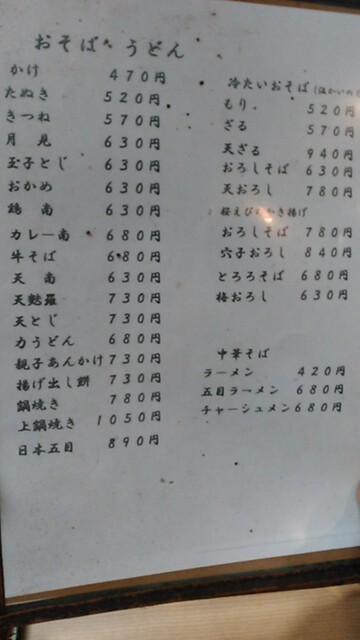 おそば うどん
かけ 470円
たぬき 520円
きつね 570円
月見 630円
玉子とじ 630円
おかめ 630円
鶏南 630円
カレー南 680円
牛そば 680円
天南 630円
天麩羅 730円
天とじ 730円
力うどん 680円
親子あんかけ 730円
揚げ出し餅 730円
鍋焼き 780円
上鍋焼き 1050円
日本五目 890円
冷たいおそば
もり 520円
ざる 570円
天ざる 940円
おろしそば 630円
天おろし 780円
桜えび かき揚げ
おろしそば 780円
穴子おろし 840円
とろろそば 680円
梅おろし 630円
中華そば
ラーメン 420円
五目ラーメン 680円
チャーシュメン 680円